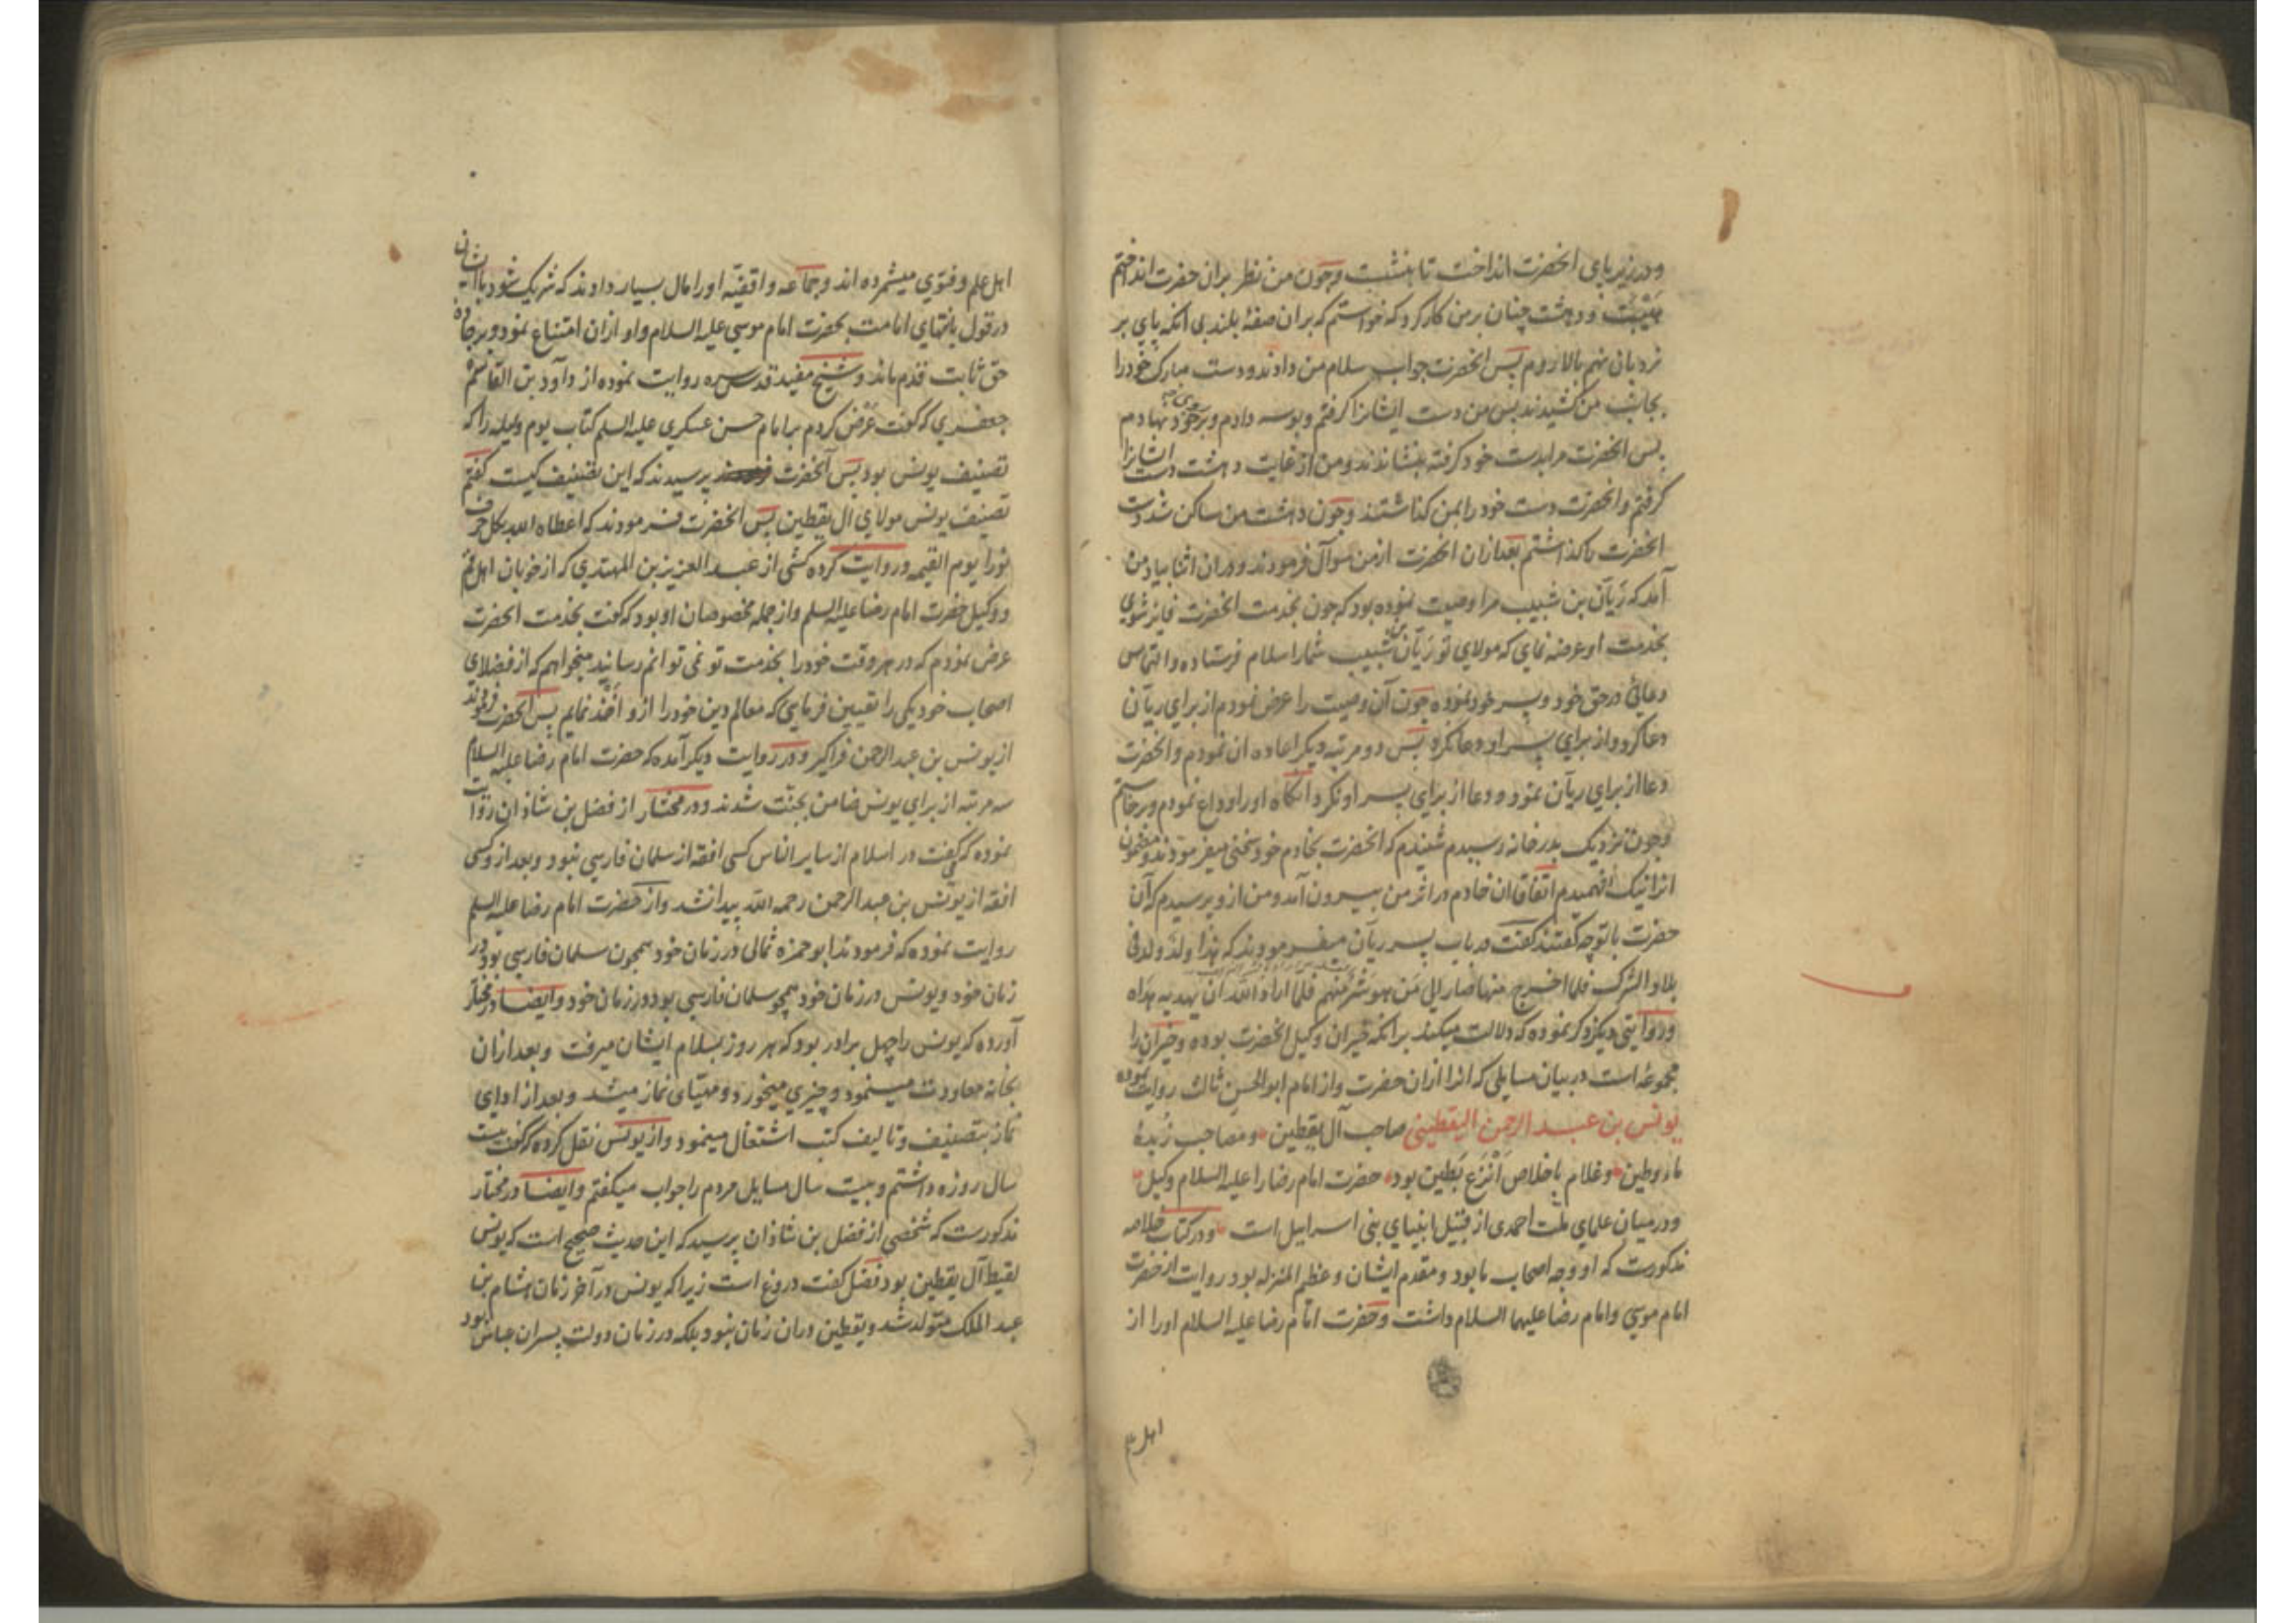 ودر زیر پای انحضرت انداخت تا بنشست وچون من نظر بران حضرت انداختم
هیبت ودهشت چنان بر من کار کرد که خواستم که بران صفهٔ بلند بی انکه پای بر
نردبان نهم بالا روم پس انحضرت جواب سلام من دادند ودست مبارک خود را
بجانب من کشیدند پس من دست ایشانرا کرفتم وبوسه دادم وبر روی خود نهادم
پس انحضرت مرا بدست خود کرفته بنشاندند ومن از غایت دهشت دست ایشانرا
کرفتم وانحضرت دست خود را بمن کذاشتند وچون دهشت من ساکن شد دست
انحضرت باکذاشتم بعد ازان انحضرت از من سوآل فرمودند ودران اثنا بیاد من
آمد که ریّان بن شبیب مرا وصیت نموده بود که چون بخدمت انحضرت فایز شوی
بخدمت او عرضه نمای که مولای تو ریّان بن شبیب شما را سلام فرستاده والتماس
دعائی در حق خود وپسر خود نموده چون آن وصیت را عرض نمودم از برای ریّان
دعا کرد واز برای پسر او دعا نکرد پس دو مرتبه دیکر اعاده ان نمودم وانحضرت
دعا از برای ریّان نمود ودعا از برای پسر او نکرد آنکاه او را وداع نمودم وبرخاستم
وچون نزدیک بدر خانه رسیدم شنیدم که انحضرت بخادم خود سخنی میفرمودند ومضمون
انرا نیک نفهمیدم اتفاقا ان خادم در اثر من بیرون آمد ومن ازو پرسیدم که آن
حضرت با تو چه کفتند کفت در باب پسر ریّان میفرمودند که هذا ولد ولد فی
بلاد الشرک فلما اخرج منها صار الی من هو شرّ منهم فلما اراد الله ان یهدیه هداه
وروایتی دیکر ذکر نموده که دلالت میکند بر انکه خیران وکیل انحضرت بوده وخیران را
مجموعه است در بیان مسایلی که انرا ازان حضرت واز امام ابو الحسن ثالث روایت نموده
یونس بن عبد الرحمن الیقطینی صاحب آل یقطین ومصاحب زبدهٔ
ماء وطین وغلام باخلاص انزع بطین بود حضرت امام رضا را علیه السلام وکیل
ودر میان علمای ملت احمدی از قبیل انبیای بنی اسرایل است ودر کتاب خلاصه
مذکورست که او وجه اصحاب ما بود ومقدم ایشان وعظیم المنزله بود روایت از حضرت
امام موسی وامام رضا علیهما السلام داشت وحضرت امام رضا علیه السلام او را از
اهل علم
اهل علم وفتوی میشمرده اند وجماعه واقفیّه او را مال بسیار دادند که شریک شود با ایشان
در قول بانتهای امامت بحضرت امام موسی علیه السلام واو ازان امتناع نمود وبر جاده
حق ثابت قدم ماند وشیخ مفید قدس سره روایت نموده از داود بن القاسم
جعفری که کفت عرض کردم بر امام حسن عسکری علیه السلم کتاب یوم ولیله را که
تصنیف یونس بود پس آنحضرت پرسیدند که این تصنیف کیست کفتم
تصنیف یونس مولای ال یقطین پس انحضرت فرمودند که اعطاه الله بکل حرف
نورا یوم القیمه وروایت کرده کشی از عبد العزیز بن المهتدی که از خوبان اهل قم
ووکیل حضرت امام رضا علیه السلم واز جمله مخصوصان او بود که کفت بخدمت انحضرت
عرض نمودم که در هر وقت خود را بخدمت تو نمی توانم رسانید میخواهم که از فضلای
اصحاب خود یکی را تعیین فرمایی که معالم دین خود را ازو اخذ نمایم پس انحضرت فرمودند
از یونس بن عبد الرحمن فراکیر ودر روایت دیکر آمده که حضرت امام رضا علیه السلام
سه مرتبه از برای یونس ضامن بجنّت شدند ودر مختار از فضل بن شاذان روایت
نموده که کفت در اسلام از سایر الناس کسی افقه از سلمان فارسی نبود وبعد از وکسی
افقه از یونس بن عبد الرحمن رحمه الله پیدا نشد واز حضرت امام رضا علیه السلم
روایت نموده که فرمودند ابو حمزه ثمالی در زمان خود همچون سلمان فارسی بود در
زمان خود ویونس در زمان خود همچو سلمان فارسی بود در زمان خود وایضا در مختار
آورده که یونس را چهل برادر بود که هر روز بسلام ایشان میرفت وبعد ازان
بخانه معاودت مینمود وچیزی میخورد ومهیّای نماز میشد وبعد از ادای
نماز بتصنیف وتالیف کتب اشتغال مینمود واز یونس نقل کرده که کفت بیست
سال روزه داشتم وبیست سال مسایل مردم را جواب میکفتم وایضا در مختار
مذکورست که شخصی از فضل بن شاذان پرسید که این حدیث صحیح است که یونس
لقیط آل یقطین بود فضل کفت دروغ است زیرا که یونس در آخر زمان هشام بن
عبد الملک متولد شد ویقطین دران زمان نبود بلکه در زمان دولت پسران عباس بود